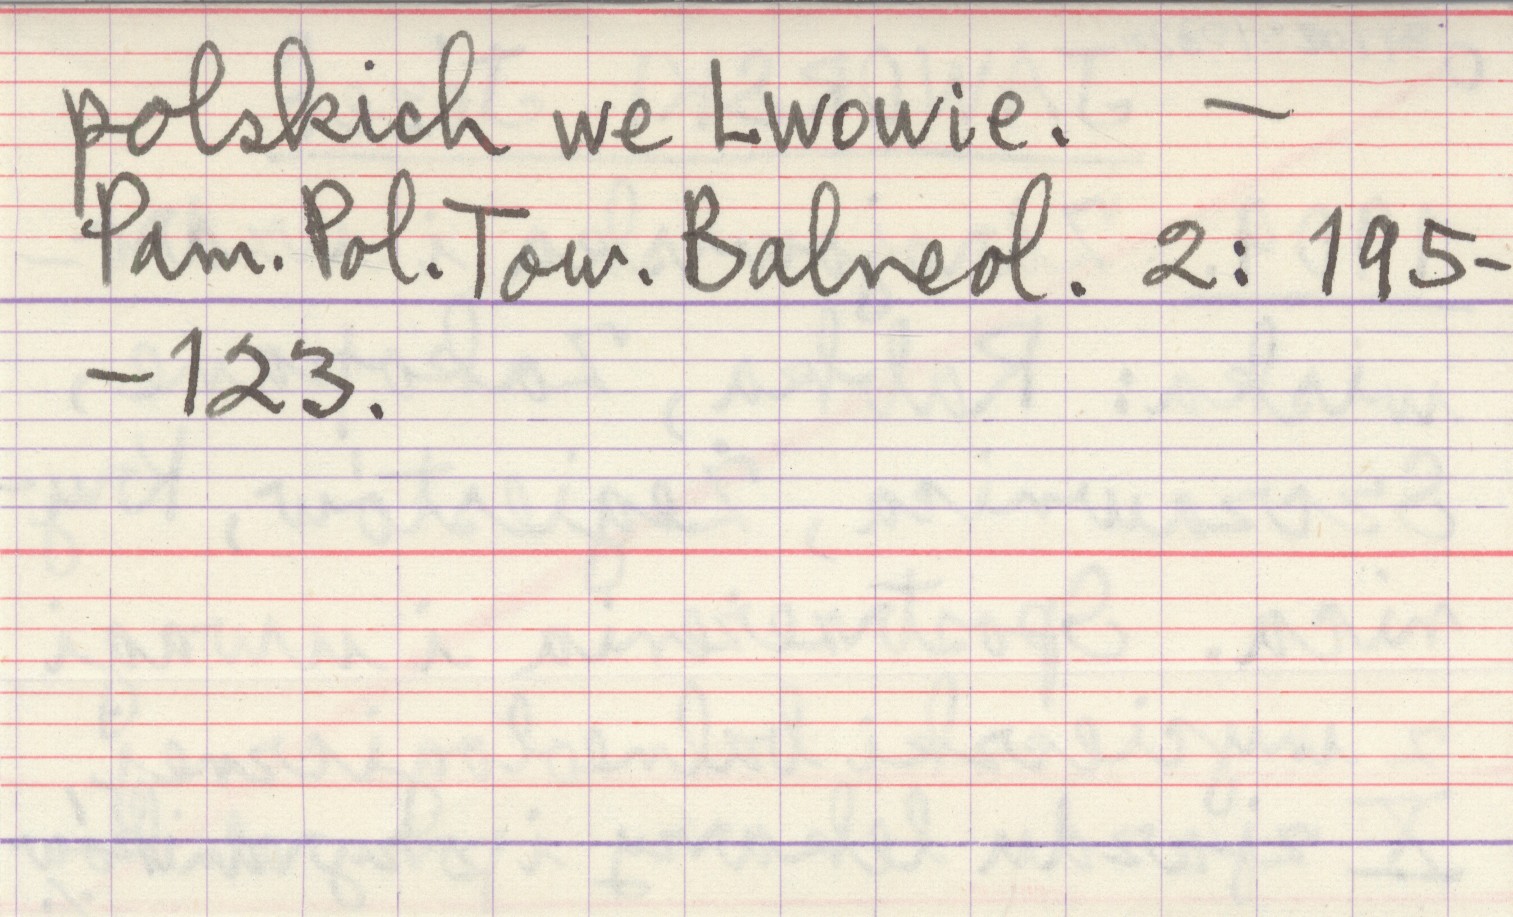 polskich we Lwowie. —
Pam. Pol. Tow. Balneol. 2: 195-
-123.